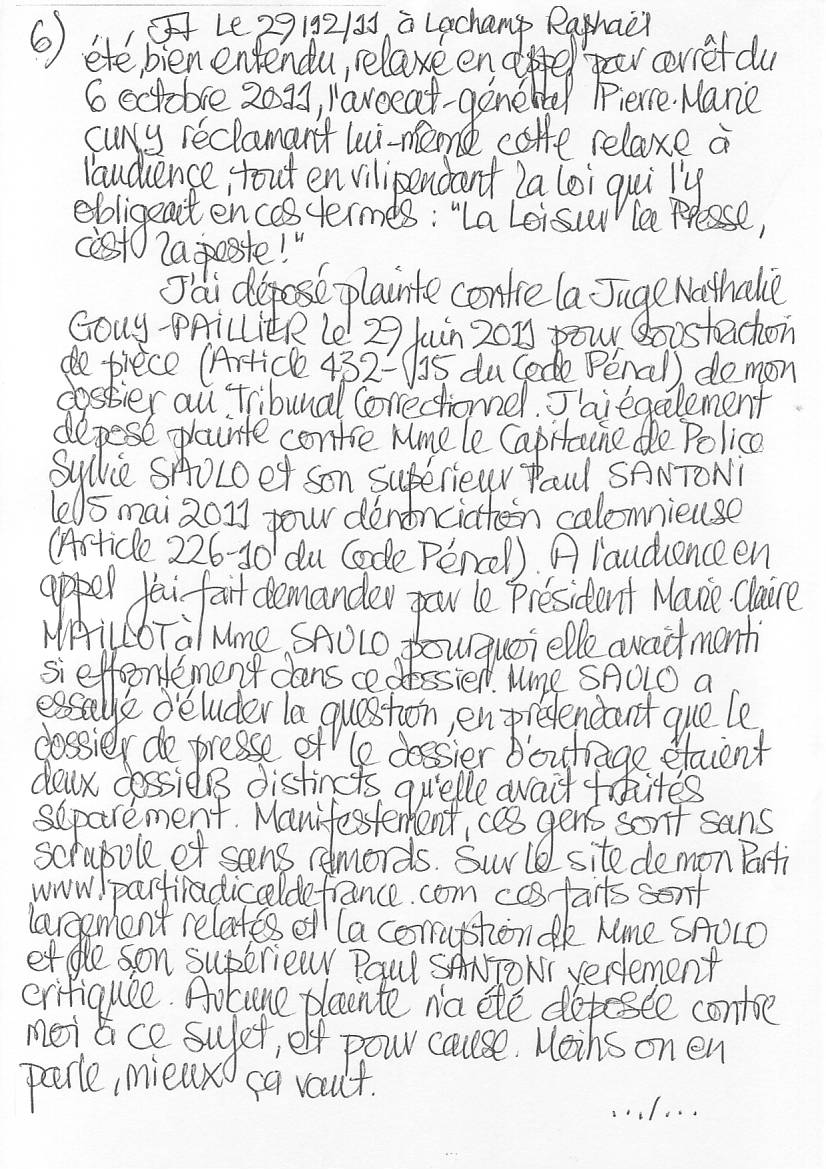 6) Le 29/12/11 à Lachamp Raphaël
été, bien entendu, relaxé en appel par arrêt du
6 octobre 2011, l'avocat-général Pierre-Marie
CUNY réclamant lui-même cette relaxe à
l'audience, tout en vilipendant la loi qui l'y
obligeait en ces termes : "La Loi sur la Presse,
c'est la peste !"
J'ai déposé plainte contre la Juge Nathalie
GOUY-PAILLIER le 29 juin 2011 pour soustraction
de pièce (Article 432-15 du Code Pénal) de mon
dossier au Tribunal Correctionnel. J'ai également
déposé plainte contre Mme le Capitaine de Police
Sylvie SAULO et son supérieur Paul SANTONI
le 5 mai 2011 pour dénonciation calomnieuse
(Article 226-10 du Code Pénal). A l'audience en
appel j'ai fait demander par le Président Marie-Claire
MAILLOT à Mme SAULO pourquoi elle avait menti
si effrontément dans ce dossier. Mme SAULO a
essayé d'éluder la question, en prétendant que le
dossier de presse et le dossier d'outrage étaient
deux dossiers distincts qu'elle avait traités
séparément. Manifestement, ces gens sont sans
scrupule et sans remords. Sur le site de mon Parti
www.partiradicaldefrance.com ces faits sont
largement relatés et la corruption de Mme SAULO
et de son supérieur Paul SANTONI vertement
critiquée. Aucune plainte n'a été déposée contre
moi à ce sujet, et pour cause. Moins on en
parle, mieux ça vaut.
.../...